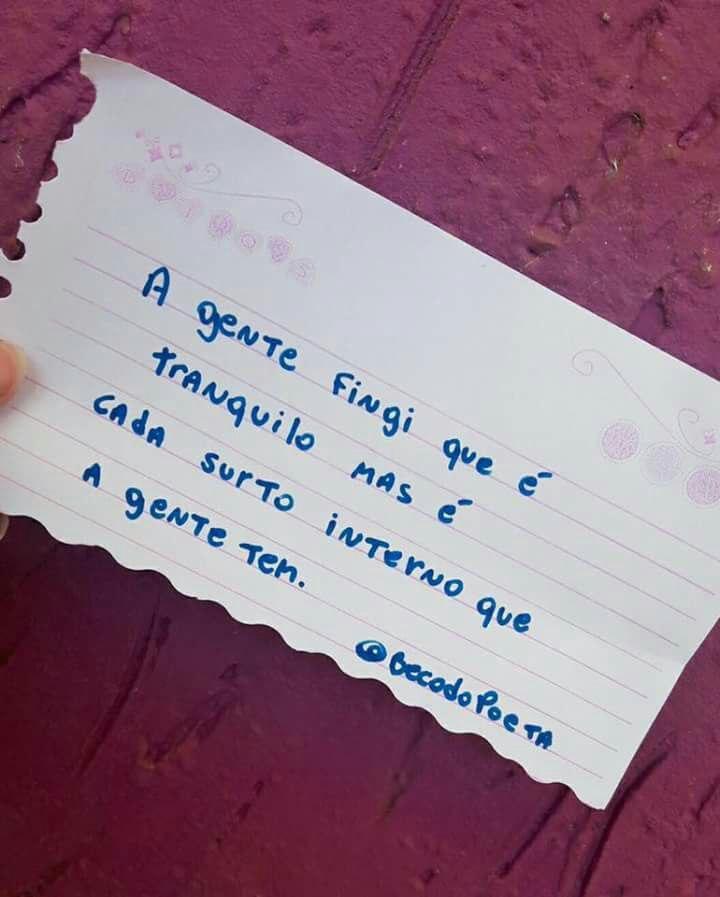 A gente fingi que é
tranquilo mas é
cada surto interno que
a gente tem.
@becodopoeta